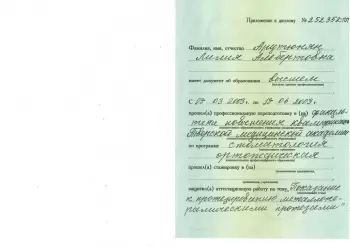 Приложение к диплому № 252352
Фамилия, имя, отчество Арутюнян
Лилия Альбертовна
имеет документ об образовании высшем
с 17 03 2003 г. по 17 06 2003 г.
прошел(а) профессиональную переподготовку в (на) факуль-
тете повышения квалификации
Тверской медицинской академии
по программе стоматология
ортопедическая
прошел(а) стажировку в (на)
защитил(а) аттестационную работу на тему „Показание
к протезированию металлоке-
рамическими протезами"